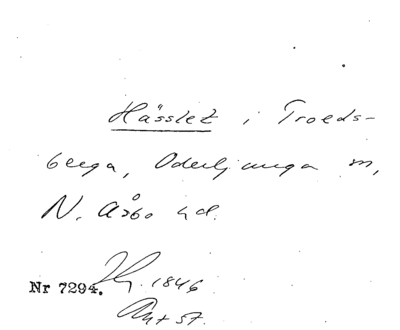 Hässlet i Troeds-
berga, Oderljunga sn,
N. Åsbo hd.
Nr 7294. 1846